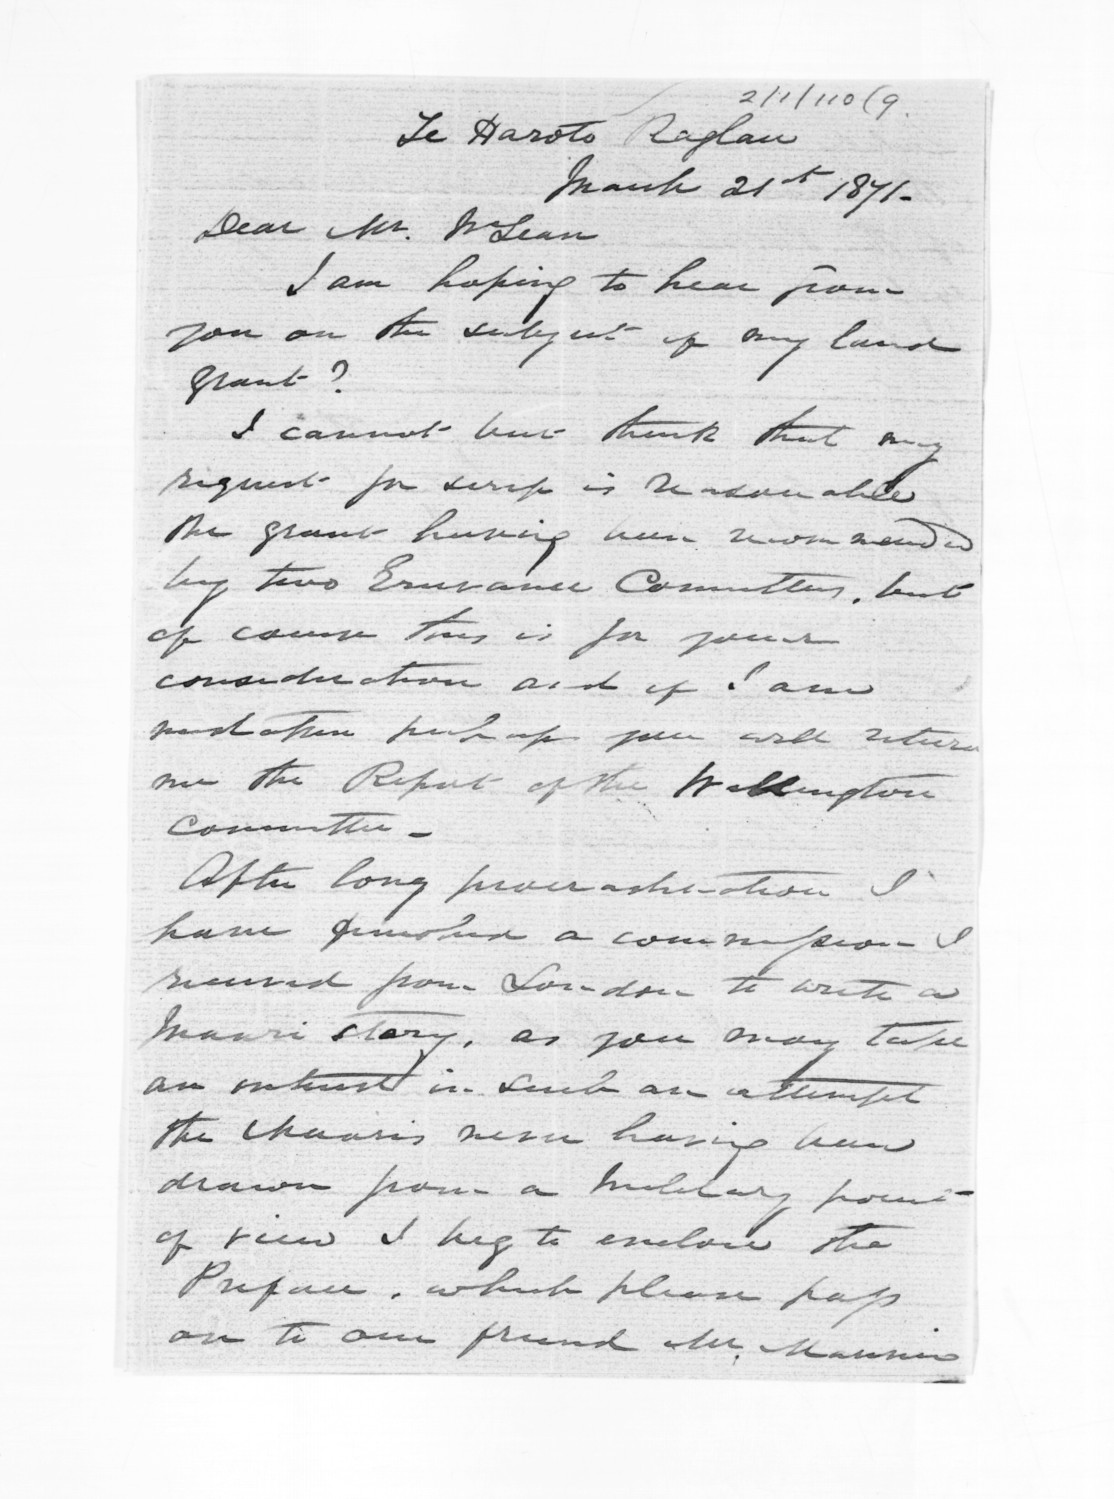 2/1/110/9.
Te Haroto Raglan
March 21st 1871-
Dear Mr. McLean
I am hoping to hear from
you on the subject of my land
grant?
I cannot but think that my
request for scrip is reasonable
the grant having been recommended
by two Grievance Committees, but
of course this is for your
consideration and if I am
mistaken perhaps you will return
me the Report of the Wellington
Committee -
After long procrastination I
have finished a commission I
received from London to write a
Maori story, as you may take
an interest in such an attempt
the Maoris never having been
drawn from a Military point
of view I beg to enclose the
Preface, which please pass
on to our friend Mr.